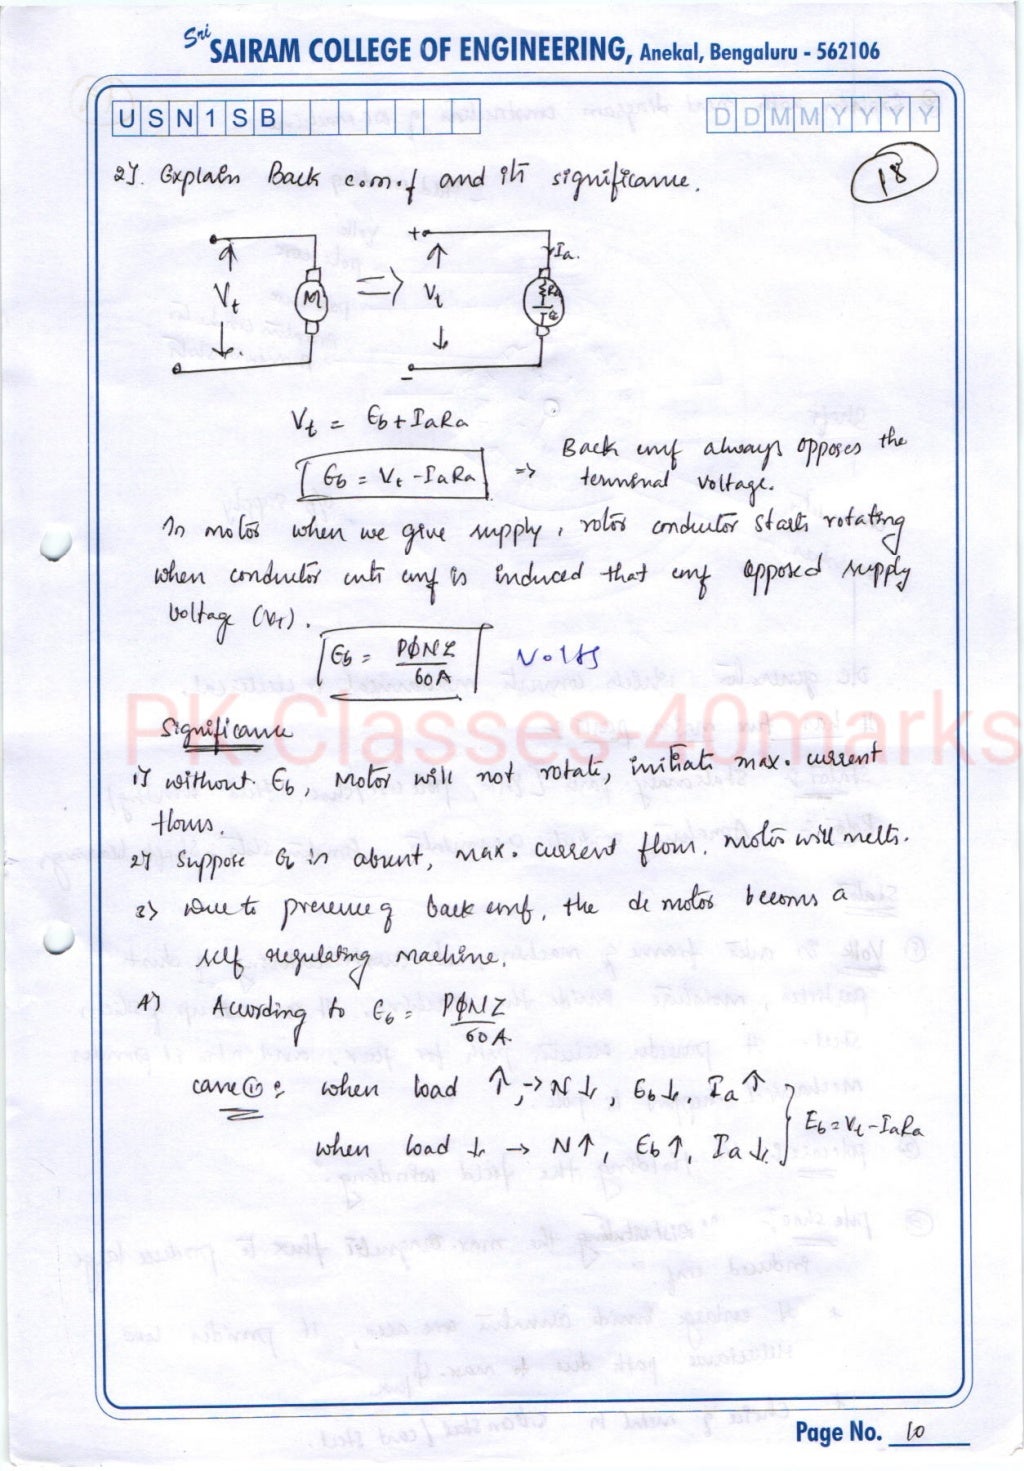 Sri
SAIRAM COLLEGE OF ENGINEERING, Anekal, Bengaluru - 562106
U S N 1 S B
D D M M Y Y Y Y
2). Explain Back e.m.f and its significance.
18
Vt
M
⇒
+
Vt
Ia.
Ra
Eb
-
Vt = Eb + IaRa
Eb = Vt - IaRa ⇒ Back emf always opposes the
terminal voltage.
In motor when we give supply, rotor conductor starts rotating
when conductor cuts emf is induced that emf opposed supply
voltage (Vt).
Eb = PϕNZ / 60A Volts
PK Classes-40marks
Significance
1) without Eb, Motor will not rotate, initiate max. current
flows.
2) Suppose Eb is absent, max. current flow. motor will melts.
3) Due to presence of back emf, the dc motor becoms a
self regulating machine.
4) According to Eb = PϕNZ / 60A.
case ① : when load ↑, → N↓, Eb↓, Ia↑
when load ↓ → N↑, Eb↑, Ia↓
Eb = Vt - IaRa
Page No. 10